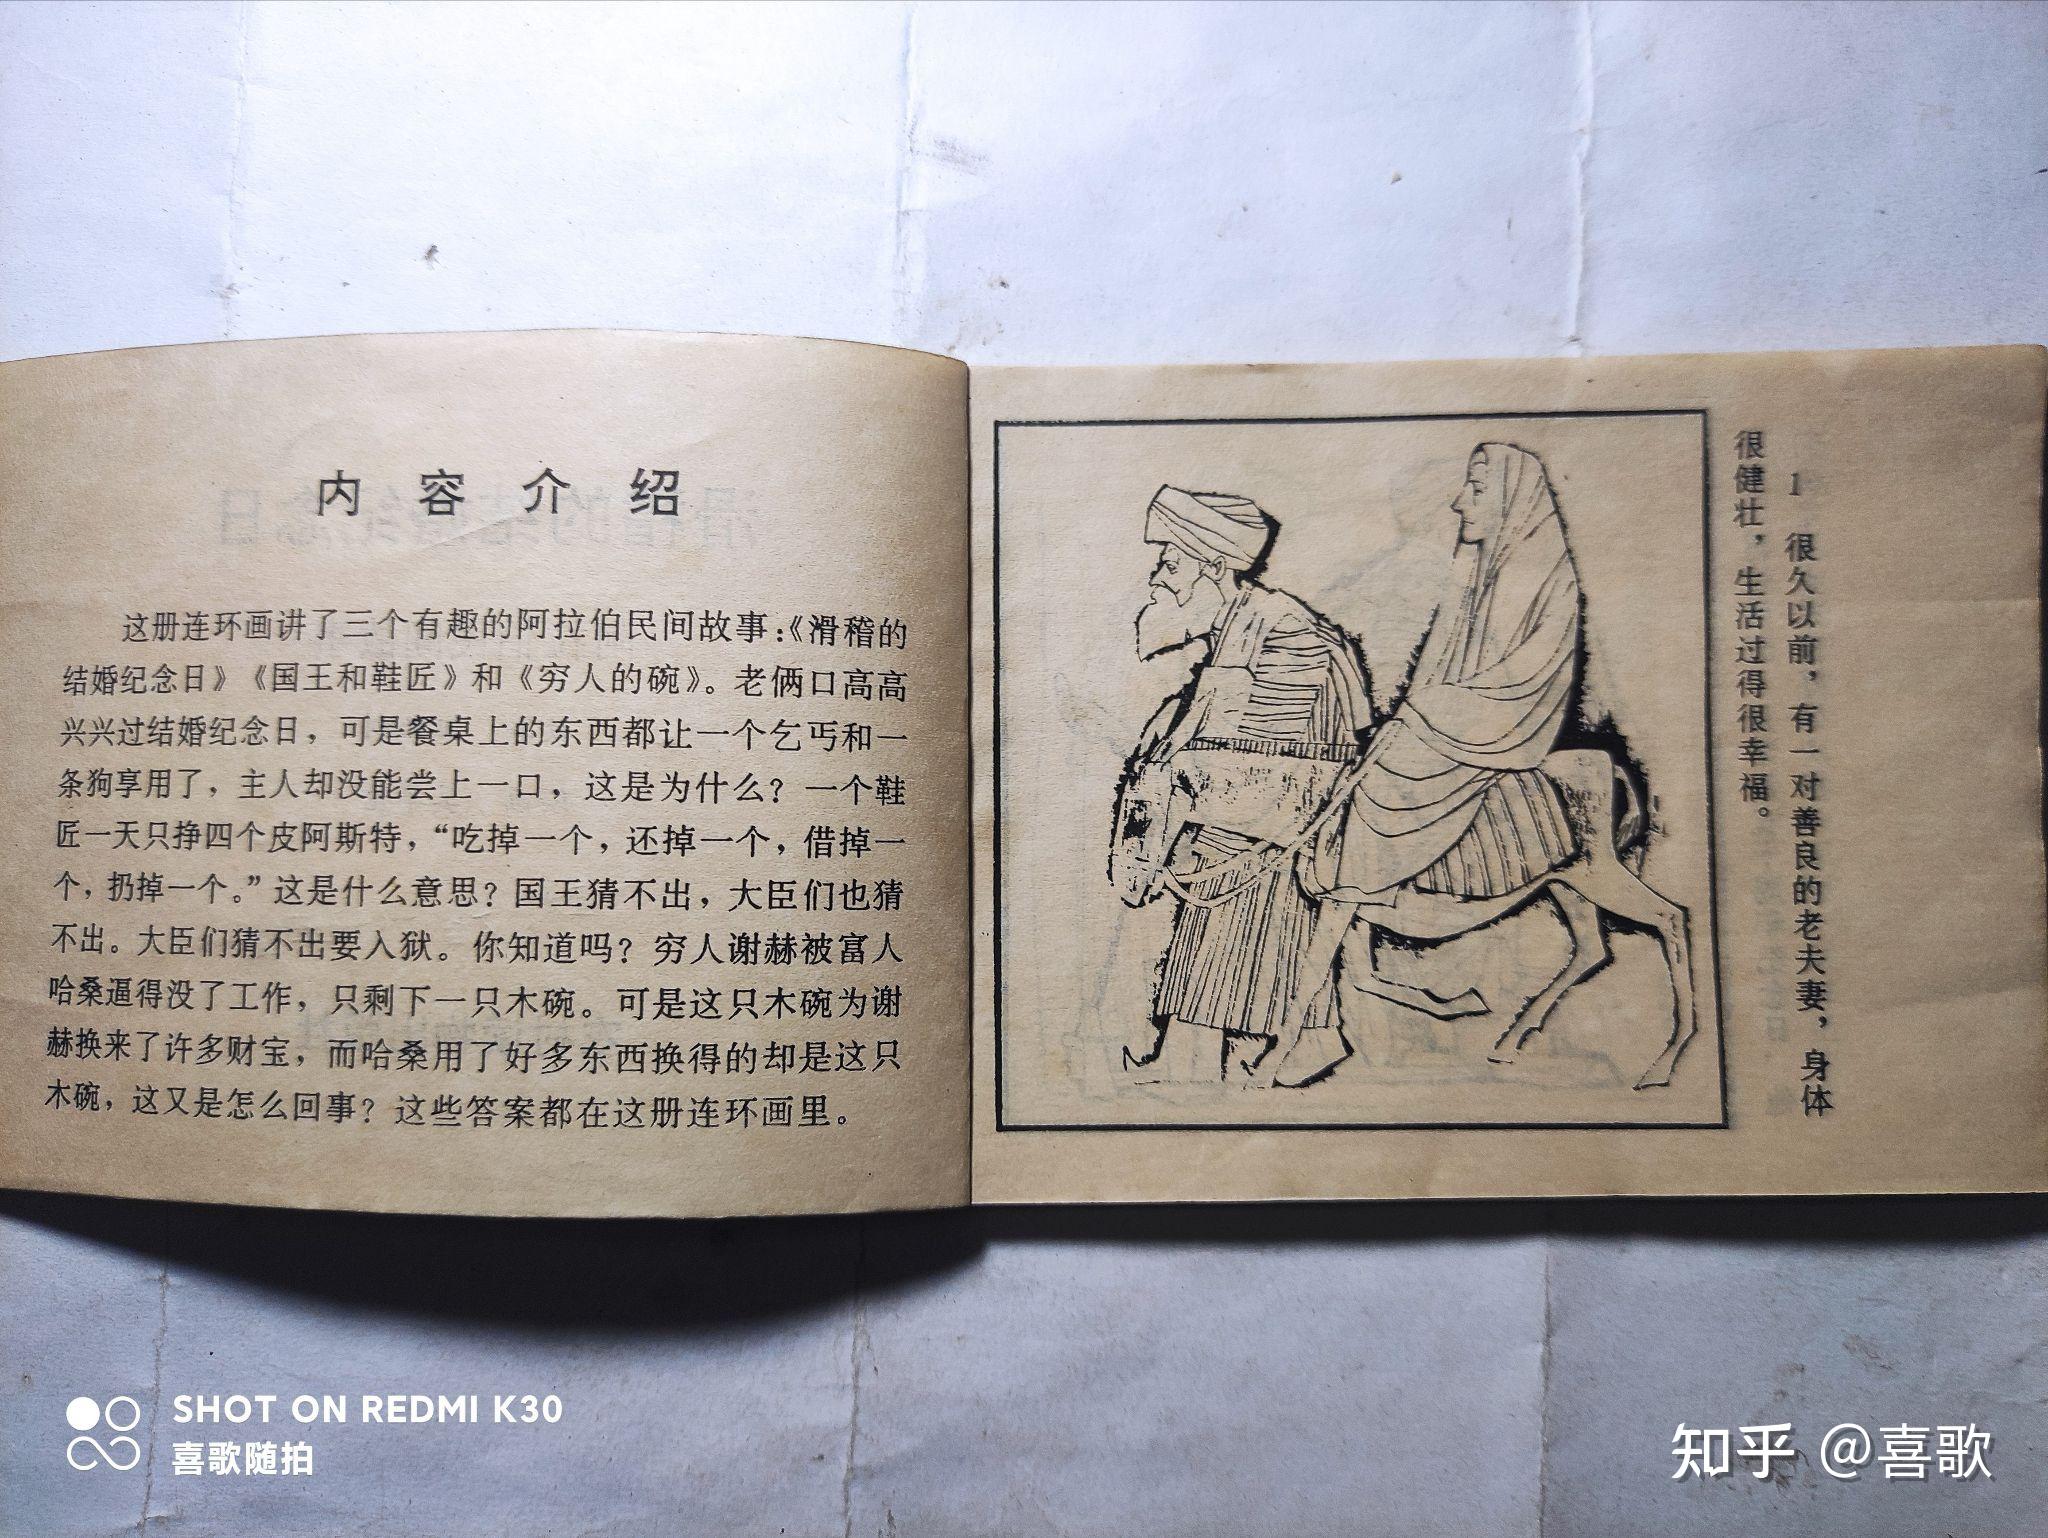 内容介绍
这册连环画讲了三个有趣的阿拉伯民间故事：《滑稽的
结婚纪念日》《国王和鞋匠》和《穷人的碗》。老俩口高高
兴兴过结婚纪念日，可是餐桌上的东西都让一个乞丐和一
条狗享用了，主人却没能尝上一口，这是为什么？一个鞋
匠一天只挣四个皮阿斯特，“吃掉一个，还掉一个，借掉一
个，扔掉一个。”这是什么意思？国王猜不出，大臣们也猜
不出。大臣们猜不出要入狱。你知道吗？穷人谢赫被富人
哈桑逼得没了工作，只剩下一只木碗。可是这只木碗为谢
赫换来了许多财宝，而哈桑用了好多东西换得的却是这只
木碗，这又是怎么回事？这些答案都在这册连环画里。
1 很久以前，有一对善良的老夫妻，身体
很健壮，生活过得很幸福。
SHOT ON REDMI K30
喜歌随拍
知乎 @喜歌